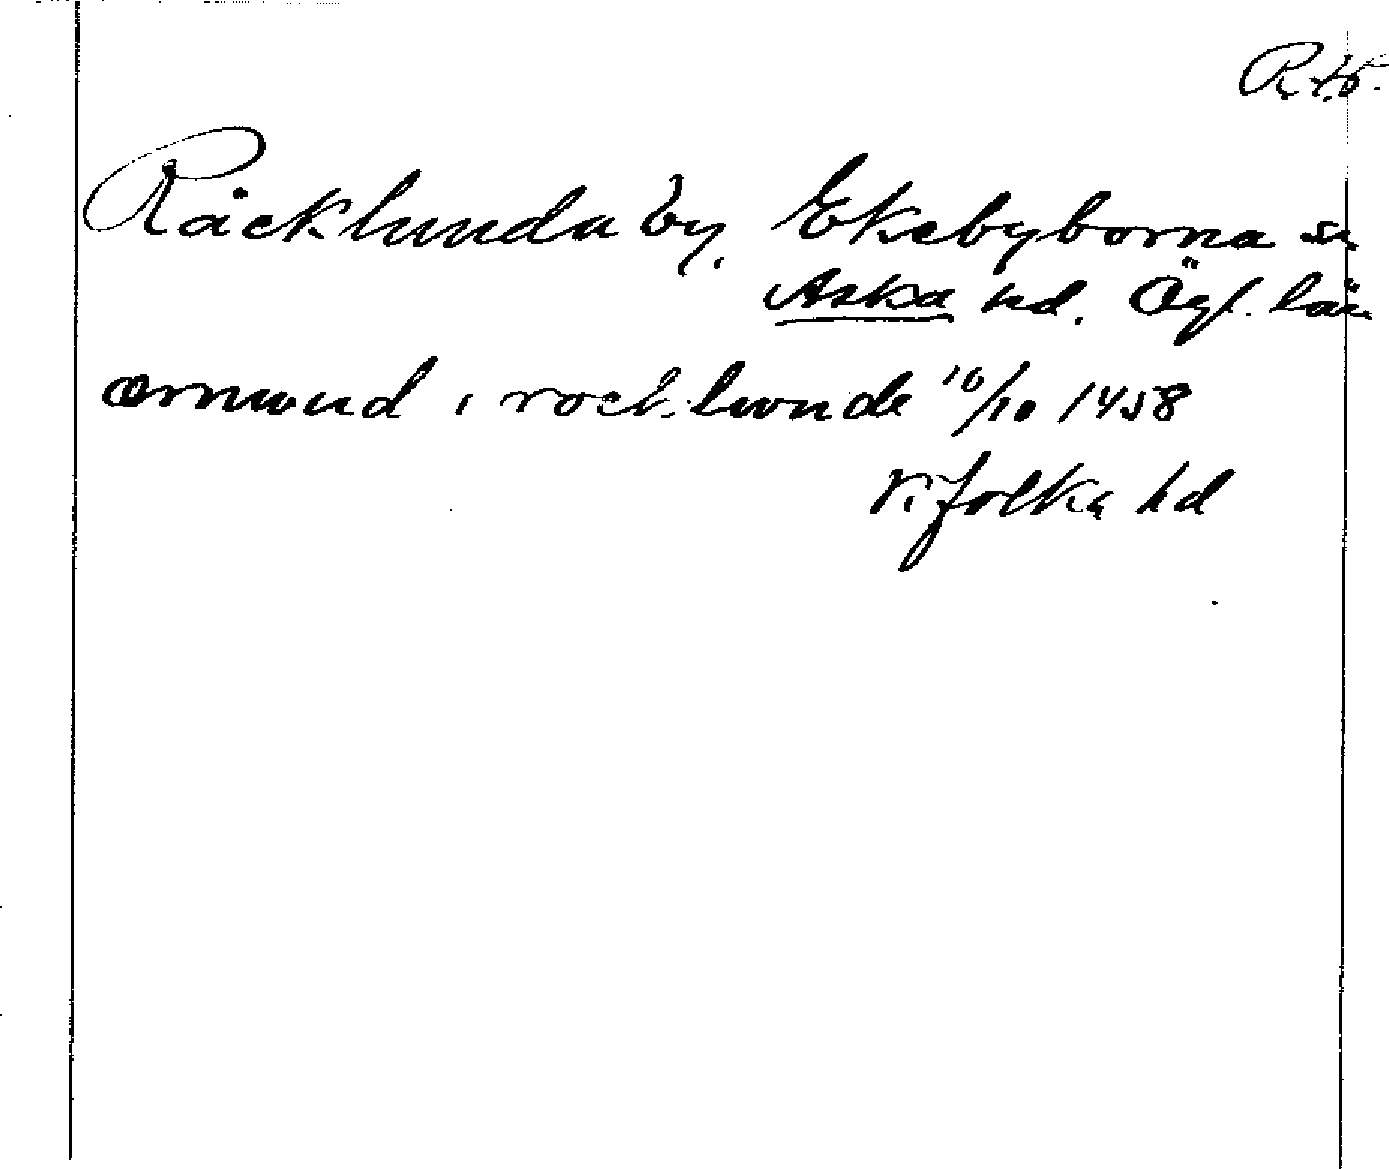 Räcklunda by, Ekebyborna sn
Aska hd. Ögl. län
ormund i rocklwnde 10/10 1458
Vifolka hd